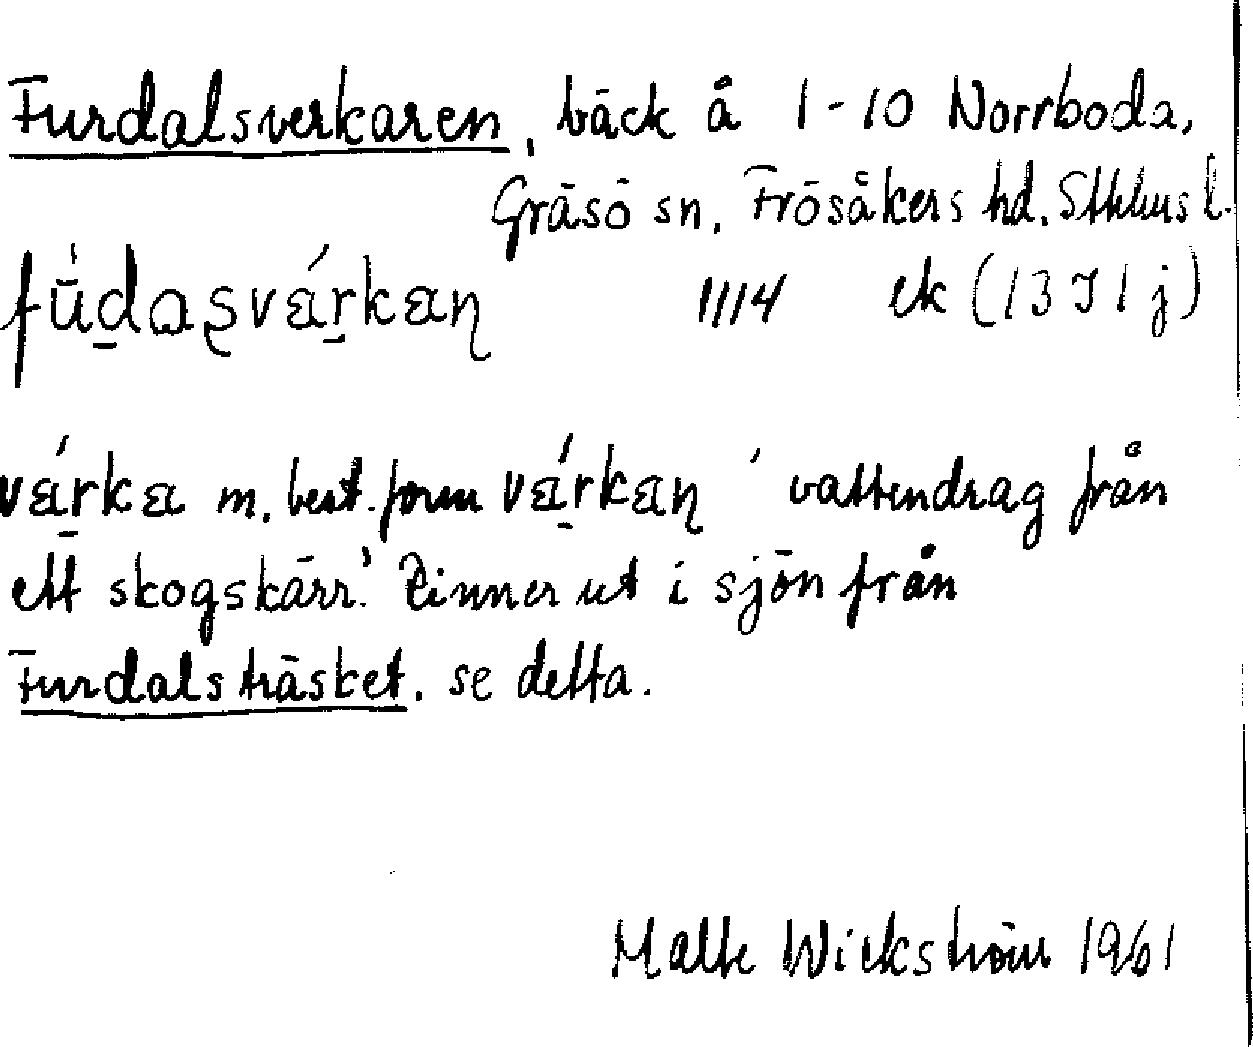 Furdalsverkaren, bäck å 1-10 Norrboda,
Gräsö sn, Frösåkers hd. Sthlms l.
fúd̲aʂvá̲rkaɳ 1114 ek (13 I 1 j)
vá̲rka m. best. form vá̲rkaɳ 'vattendrag från
ett skogskärr.' Rinner ut i sjön från
Furdalsträsket. se detta.
Malte Wickström 1961